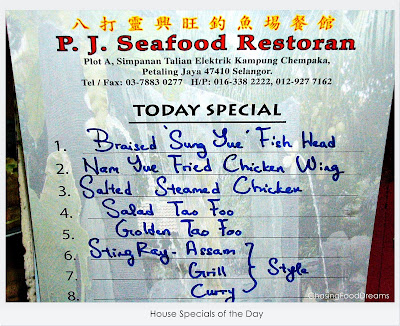 八打靈興旺釣魚場餐館
P. J. Seafood Restoran
Plot A, Simpanan Talian Elektrik Kampung Chempaka,
Petaling Jaya 47410 Selangor.
Tel / Fax: 03-7883 0277 H/P: 016-338 2222, 012-927 7162
TODAY SPECIAL
1. Braised 'Sung Yue' Fish Head
2. Nam Yue Fried Chicken Wing
3. Salted Steamed Chicken
4. Salad Tao Foo
5. Golden Tao Foo
6. Sting Ray - Assam
7. Grill } Style
8. Curry
ChasingFoodDreams
House Specials of the Day